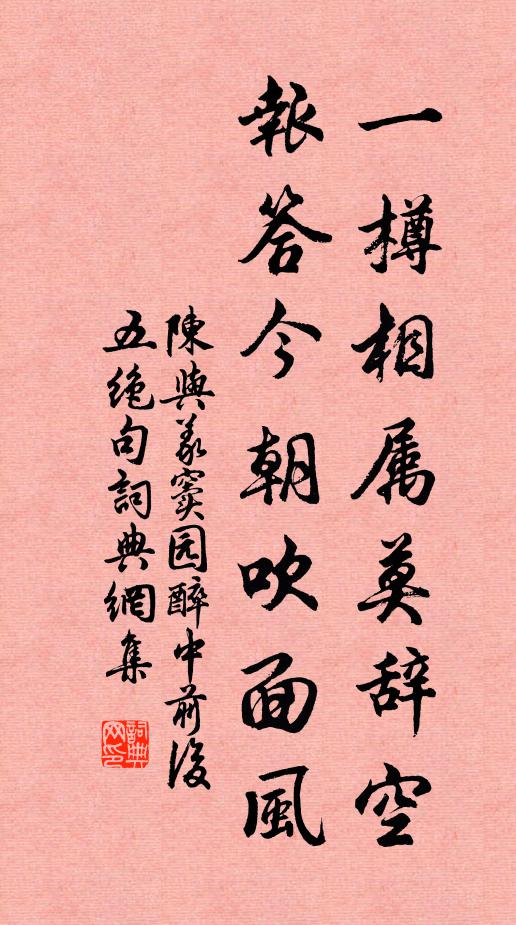 一樽相属莫辞空
報答今朝吹面風
陳與義窦园醉中前後
五绝句詞典網集
詞典网印